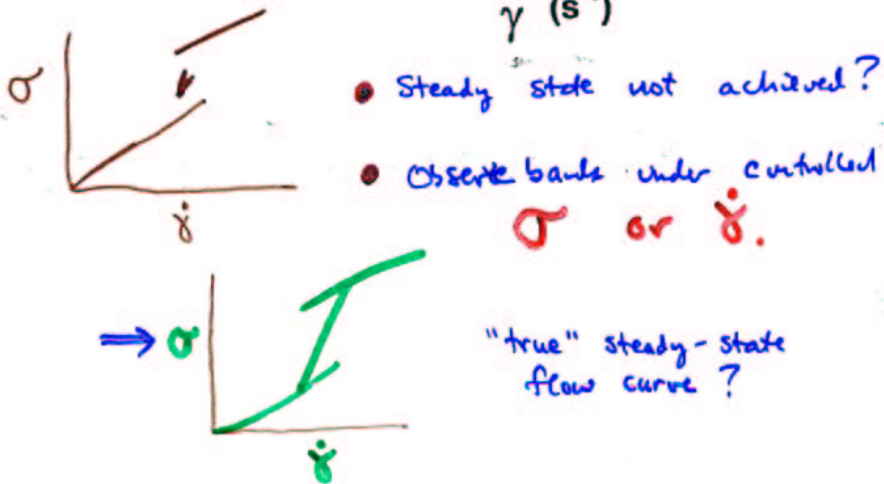 γ̇ (s⁻¹)
σ
• Steady state not achieved?
• Observe bands under controlled
γ̇
σ or γ̇.
⇒ σ
"true" steady-state
flow curve ?
γ̇